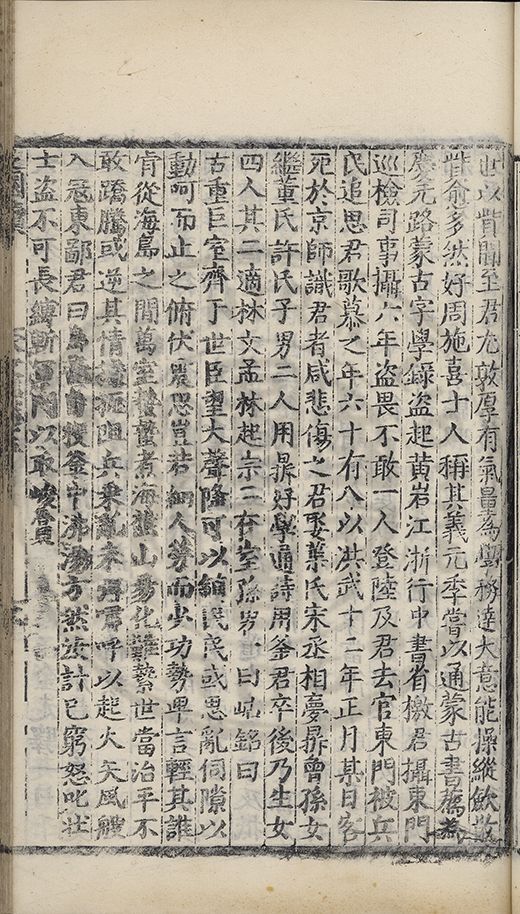 世以貲聞至君尤敦厚有氣量為學務達大意能操縱飲散
貲俞多然好周施喜士人稱其義元季嘗以通蒙古書薦為
慶元路蒙古字學錄盗起黃岩江浙行中書省檄君攝東門
巡檢司事攝六年盗畏不敢一人登陸及君去官東門被兵
民追思君歌慕之年六十有八以洪武十二年正月某日客
死於京師識君者咸悲傷之君娶葉氏宋丞相夢鼎曾孫女
繼董氏許氏子男二人用鼎好學通詩用釜君卒後乃生女
四人其二適林文孟林起宗二在室孫男一曰 銘曰
古重巨室齊于世臣望大聲隆可以 民民或思亂伺隙以
動呵而止之俯伏 恐豈若細人勞而少功勢卑言輕其誰
肯從海島之間萬室蟄蟄煮海 山 化難縶世當治平不
敢蹻騰或逆其情 阻兵乘亂未 呼以起火矢風艘
入冦東鄙君曰 釜中沸湯方然汝計已窮怒叱壯
士盗不可長縛斬軍門以 峻